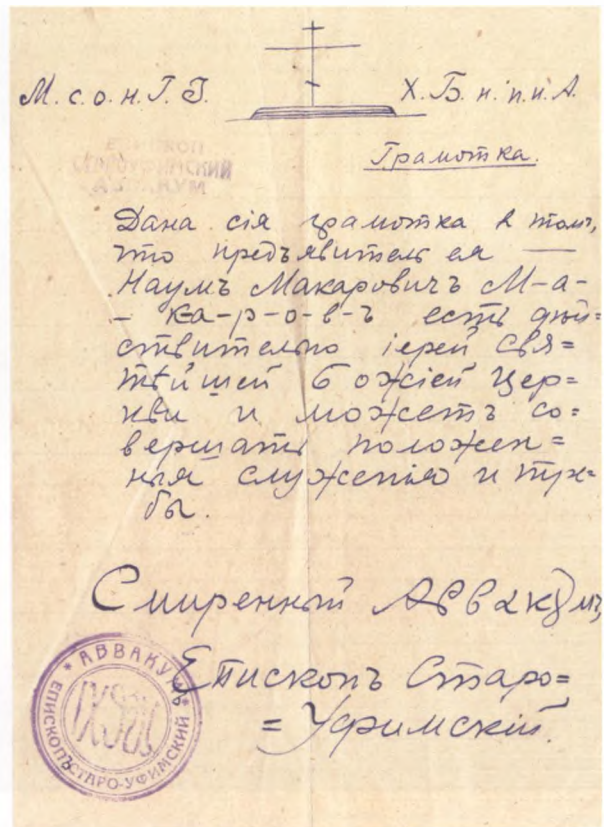 М. с. о. н. Г. З. Х. Б. н. п. и. А.
ЕПИСКОП
СТАРОУФИМСКИЙ
АВВАКУМ
Грамотка.
Дана сія грамотка в том,
что предъявитель ея —
Наумъ Макаровичъ М-а-
- ка-р-о-в-ъ есть дѣй=
ствительно іерей свя=
тѣйшей Божіей Цер=
кви и можетъ со=
вершать положен=
ныя служенію и
бы.
Смиренный Аввакумъ,
Епископъ Старо=
= Уфимскій.
* АВВАКУМЪ * ЕПИСКОПЪ СТАРО-УФИМСКИЙ